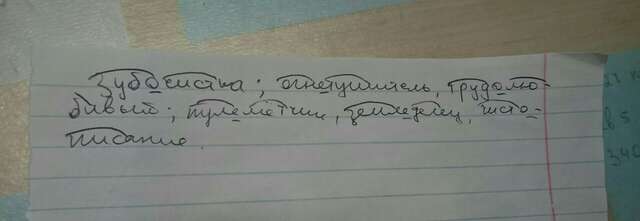 зубочистка; огнетушитель, трудолю-
бивый; пулеметчик, земледелец, чисто-
писание.